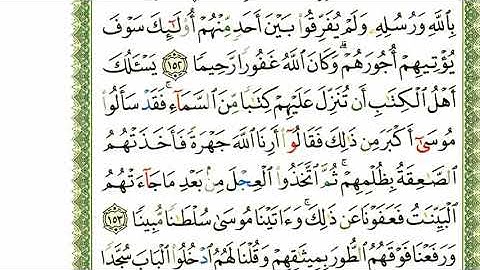 بِٱللَّهِ وَرُسُلِهِۦ وَلَمْ يُفَرِّقُوا۟ بَيْنَ أَحَدٍ مِّنْهُمْ أُو۟لَـٰٓئِكَ سَوْفَ
يُؤْتِيهِمْ أُجُورَهُمْ ۗ وَكَانَ ٱللَّهُ غَفُورًا رَّحِيمًا ١٥٢ يَسْـَٔلُكَ
أَهْلُ ٱلْكِتَـٰبِ أَن تُنَزِّلَ عَلَيْهِمْ كِتَـٰبًا مِّنَ ٱلسَّمَآءِ ۚ فَقَدْ سَأَلُوا۟
مُوسَىٰٓ أَكْبَرَ مِن ذَٰلِكَ فَقَالُوٓا۟ أَرِنَا ٱللَّهَ جَهْرَةً فَأَخَذَتْهُمُ
ٱلصَّـٰعِقَةُ بِظُلْمِهِمْ ۚ ثُمَّ ٱتَّخَذُوا۟ ٱلْعِجْلَ مِنۢ بَعْدِ مَا جَآءَتْهُمُ
ٱلْبَيِّنَـٰتُ فَعَفَوْنَا عَن ذَٰلِكَ ۚ وَءَاتَيْنَا مُوسَىٰ سُلْطَـٰنًا مُّبِينًا ١٥٣
وَرَفَعْنَا فَوْقَهُمُ ٱلطُّورَ بِمِيثَـٰقِهِمْ وَقُلْنَا لَهُمُ ٱدْخُلُوا۟ ٱلْبَابَ سُجَّدًا